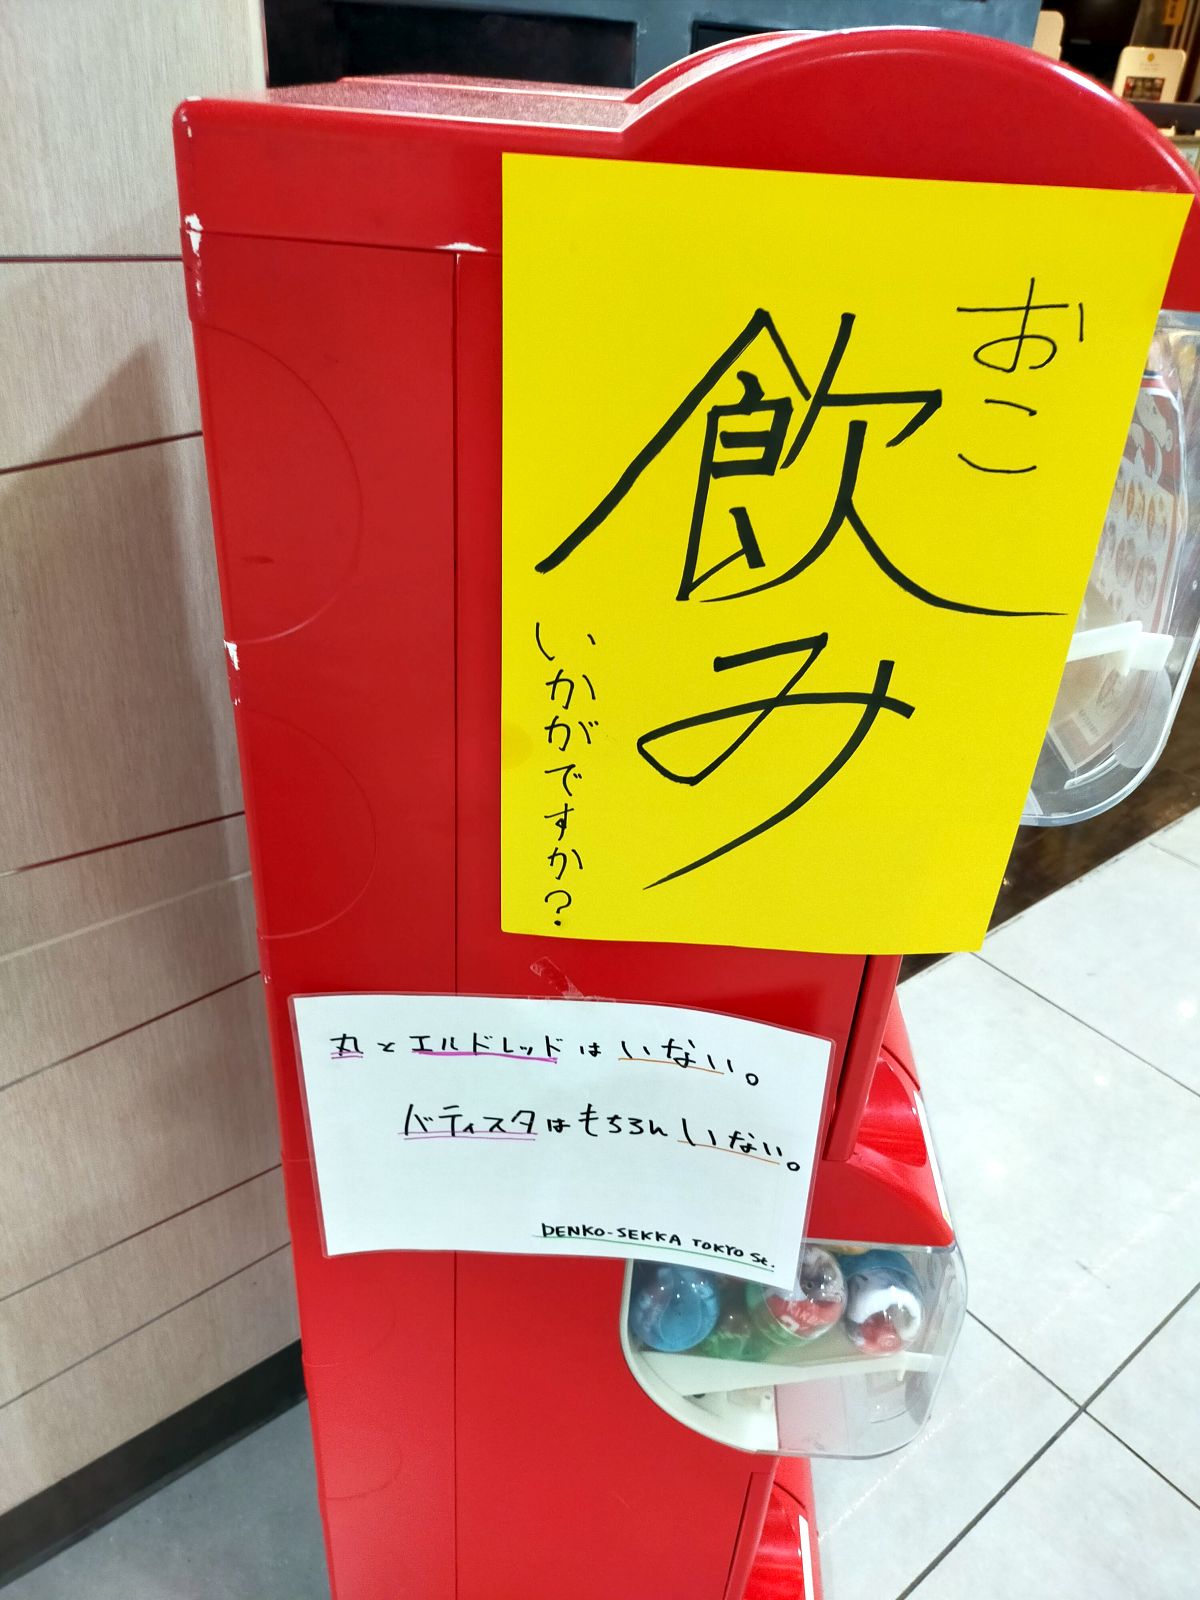 おこ
飲み
いかがですか?
丸とエルドレッドはいない。
バティスタはもちろんいない。
DENKO-SEKKA TOKYO St.